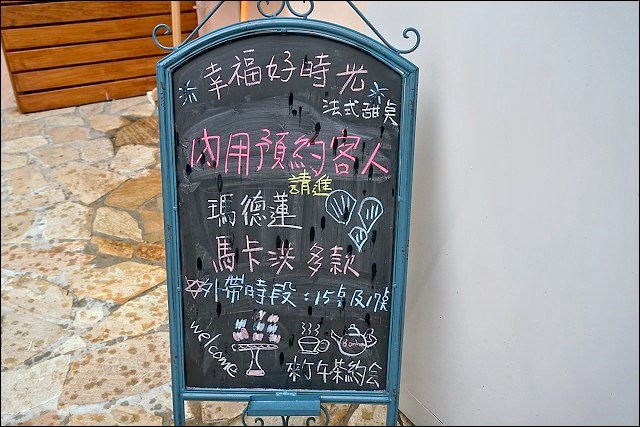 幸福好時光
法式甜點
內用預約客人
請進
瑪德蓮
馬卡龙 多款
外帶時段:15點及17點
welcome
來個下午茶約會